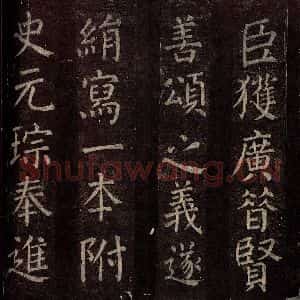 臣獲廣晉賢
善頌之義遂
絹寫一本附
史元琮奉進
Shufawang.Cn